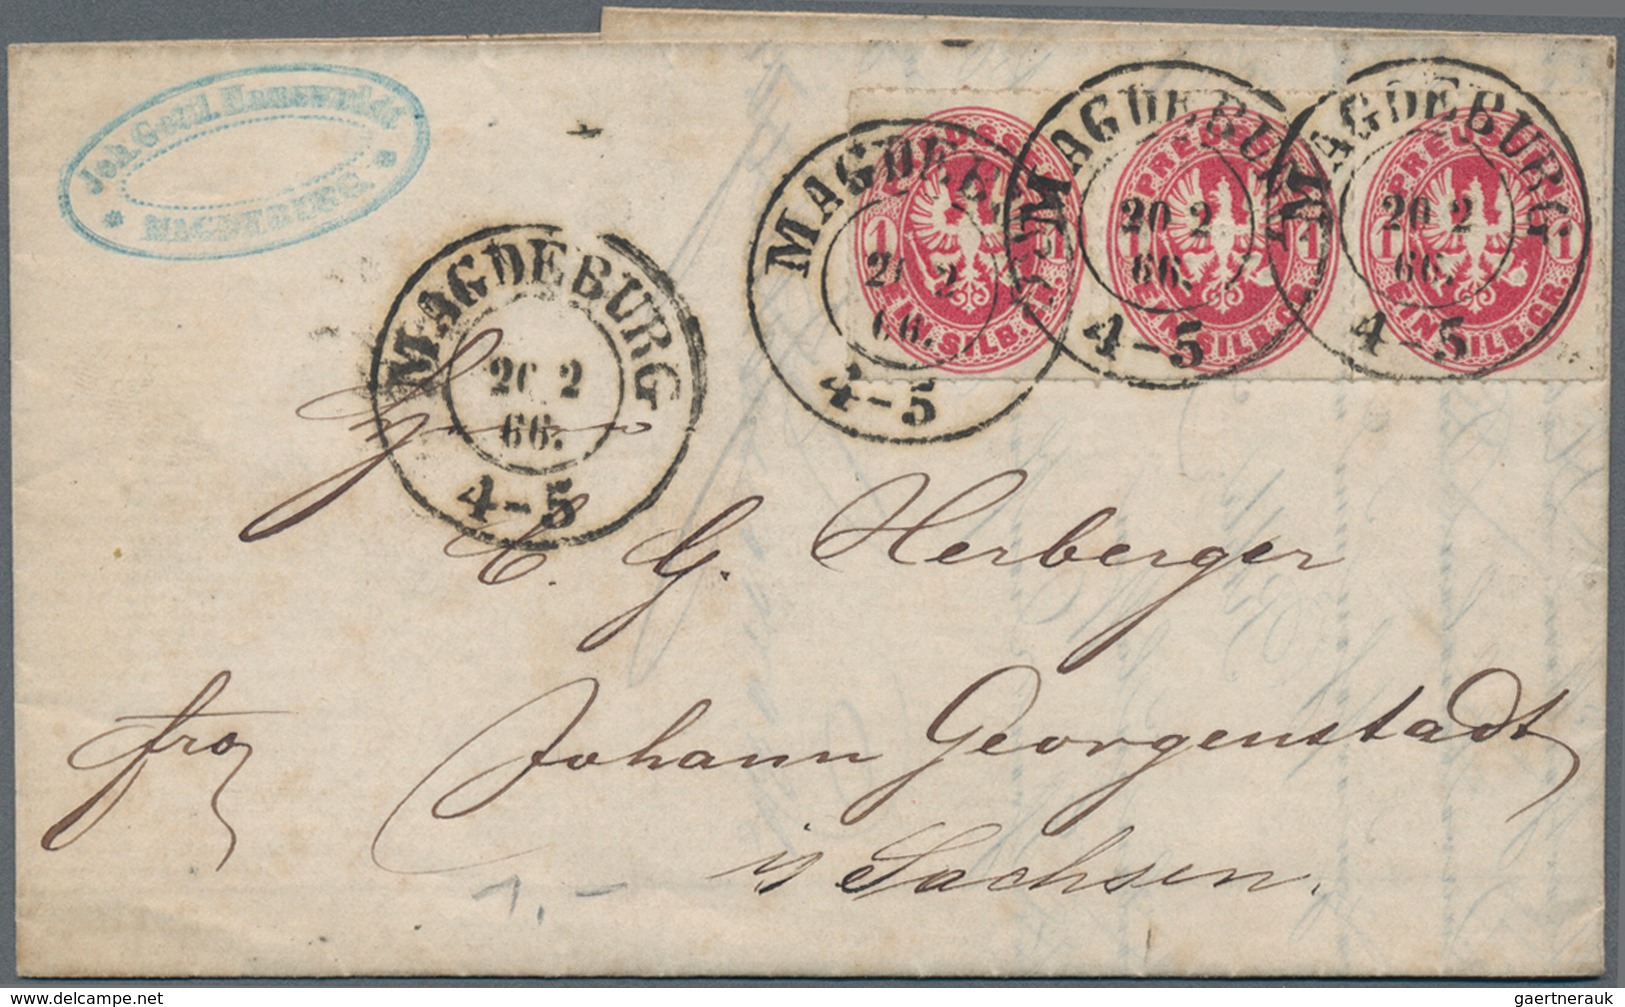 Joh. Gottl. Hauswaldt
MAGDEBURG
MAGDEBURG
20 2
66.
4-5
MAGDEBURG
20 2
66.
4-5
MAGDEBURG
20 2
66.
4-5
MAGDEBURG
20 2
66.
4-5
PREUSSEN
1 1
EIN SILB. GR.
PREUSSEN
1 1
EIN SILB. GR.
PREUSSEN
1 1
EIN SILB. GR.
C. G. Herberger
fro Johann Georgenstadt
i/ Sachsen.
1.-
www.delcampe.net
gaertnerauk